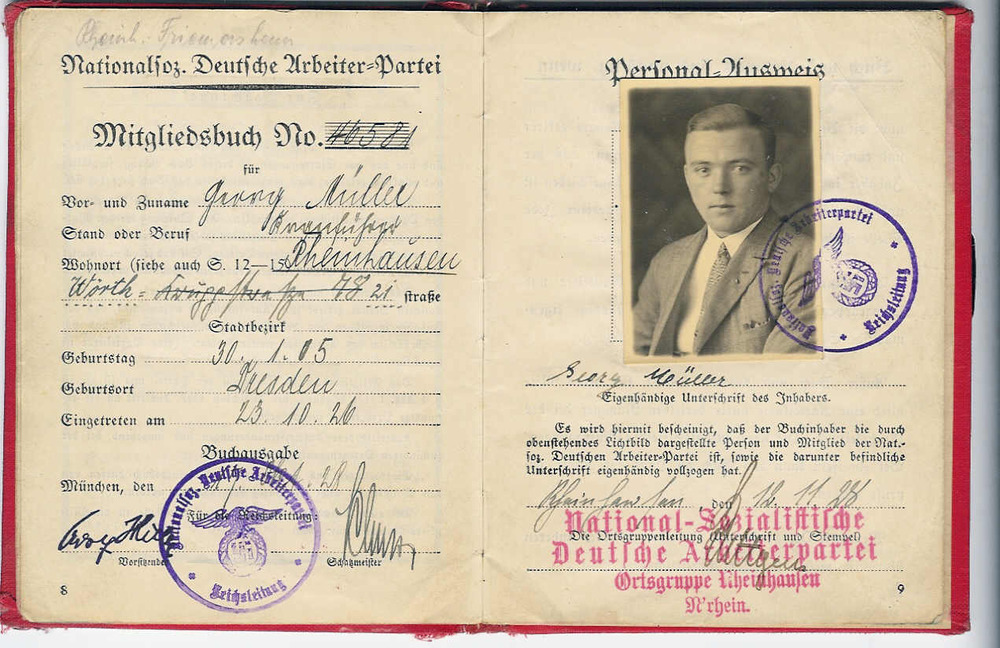 Rheinh.-Friemersheim
Nationalsoz. Deutsche Arbeiter-Partei
Mitgliedsbuch No. 46581
für
Vor- und Zuname Georg Müller
Stand oder Beruf Kranführer
Wohnort (siehe auch S. 12—15 Rheinhausen
Wörth- Kruppstrasse 78 21 straße
Stadtbezirk
Geburtstag 30. 1. 05
Geburtsort Dresden
Eingetreten am 23. 10. 26
Buchausgabe
München, den 28
Für die Reichsleitung:
Vorsitzender Schatzmeister
Nationalsoz. Deutsche Arbeiterpartei
Reichsleitung
8
Personal-Ausweis
Nationalsoz. Deutsche Arbeiterpartei
Reichsleitung
Georg Müller
Eigenhändige Unterschrift des Inhabers.
Es wird hiermit bescheinigt, daß der Buchinhaber die durch
obenstehendes Lichtbild dargestellte Person und Mitglied der Nat.-
soz. Deutschen Arbeiter-Partei ist, sowie die darunter befindliche
Unterschrift eigenhändig vollzogen hat.
Rheinhausen den 12. 11. 28
National-Sozialistische
Die Ortsgruppenleitung (Unterschrift und Stempel)
Deutsche Arbeiterpartei
Ortsgruppe Rheinhausen
N'rhein.
9